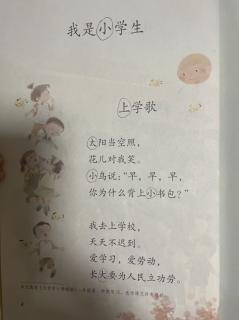 我是小学生
上学歌
太阳当空照，
花儿对我笑。
小鸟说：“早，早，早，
你为什么背上小书包？”
我去上学校，
天天不迟到。
爱学习，爱劳动，
长大要为人民立功劳。